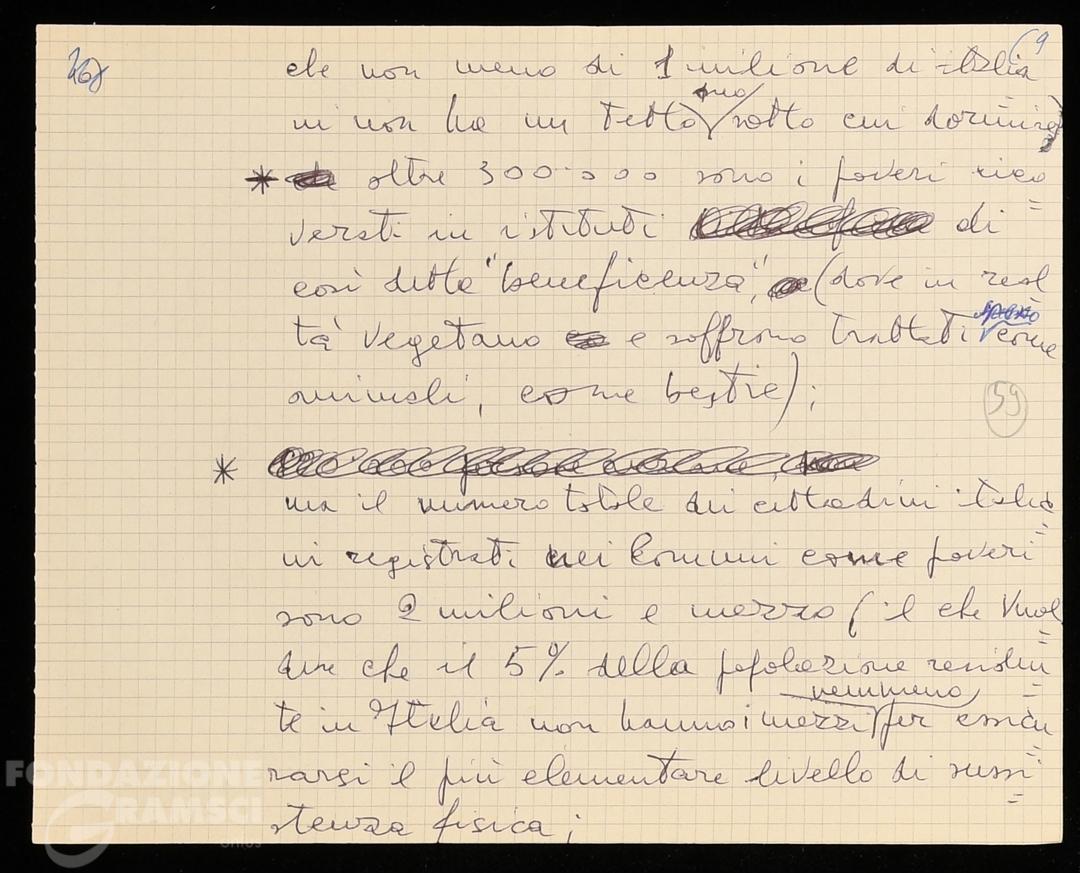 che non meno di 1 milione di italia
ni non ha un tetto suo sotto cui dormire)
* oltre 300.000 sono i poveri rico
verati in istituti di
così detta "beneficenza", (dove in real
tà vegetano e soffrono trattati spesso come
animali, come bestie);
*
ma il numero totale dei cittadini italia
ni registrati nei Comuni come poveri
sono 2 milioni e mezzo (il che vuol
dire che il 5% della popolazione residen
te in Italia non hanno i mezzi nemmeno per assicu
rarsi il più elementare livello di sussi
stenza fisica;
59
FONDAZIONE
GRAMSCI
onlus